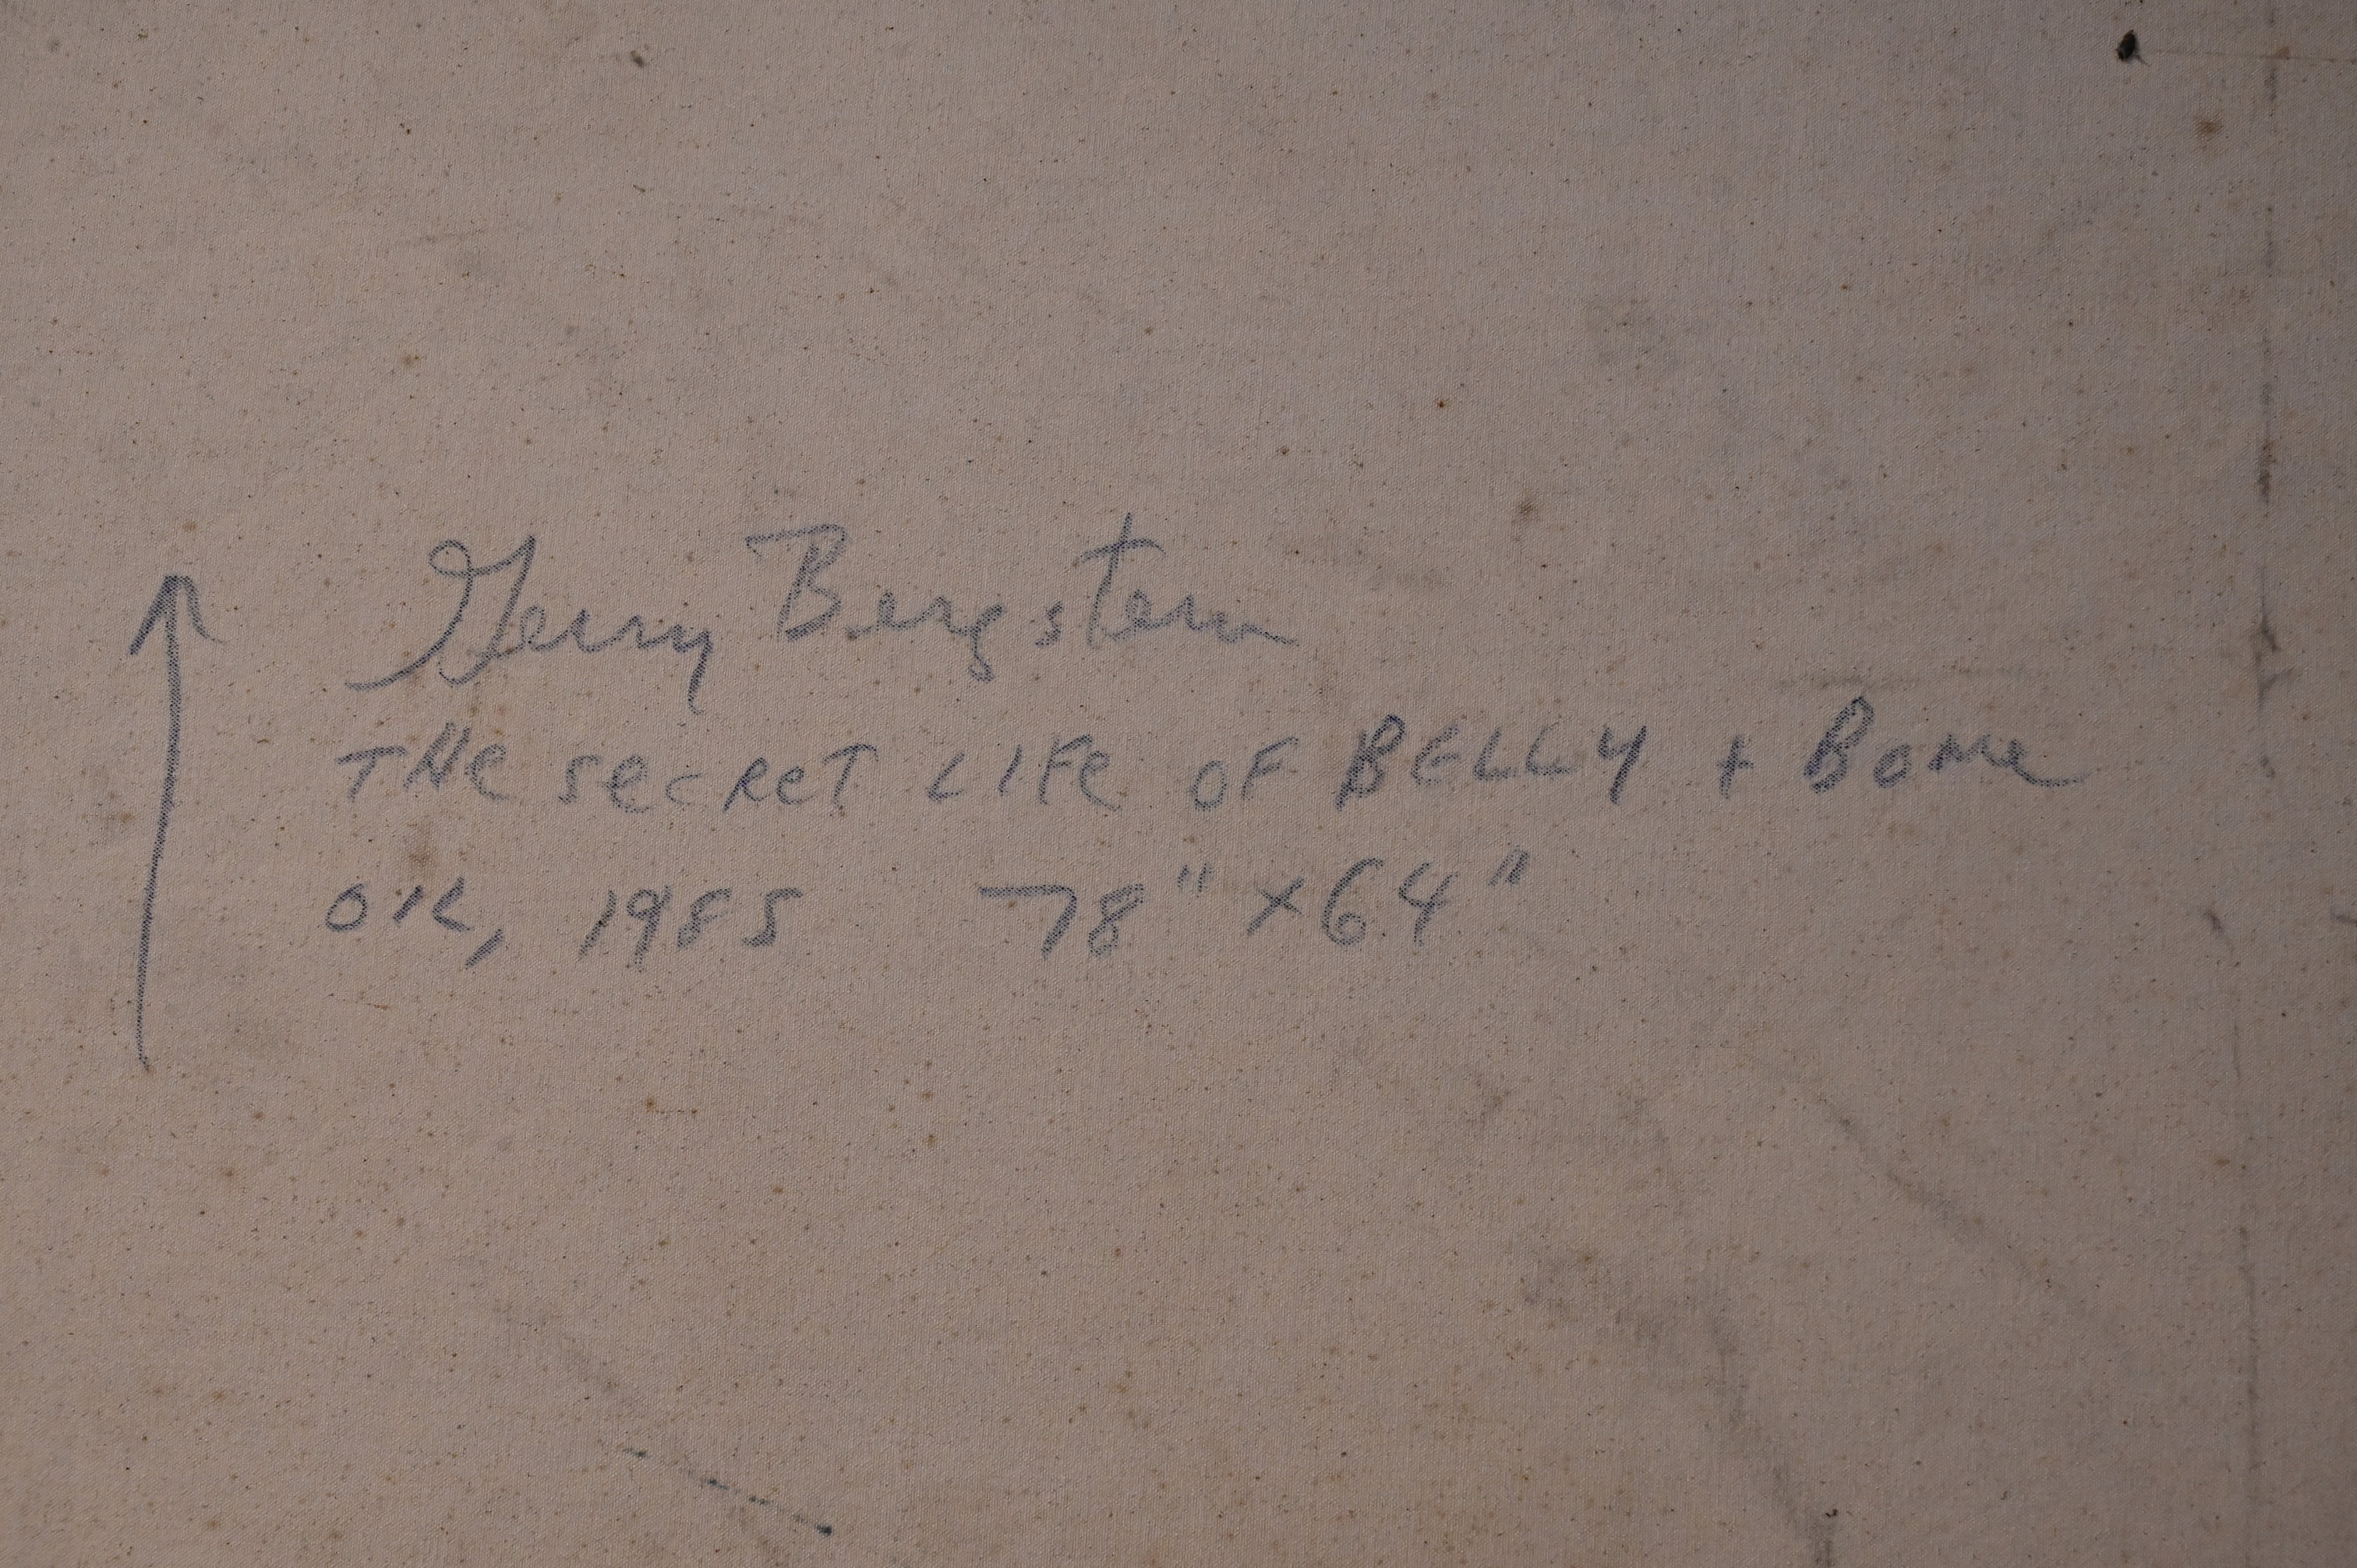 Gerry Bergstein
THE SECRET LIFE OF BELLY + BONE
OIL, 1985 78" x 64"